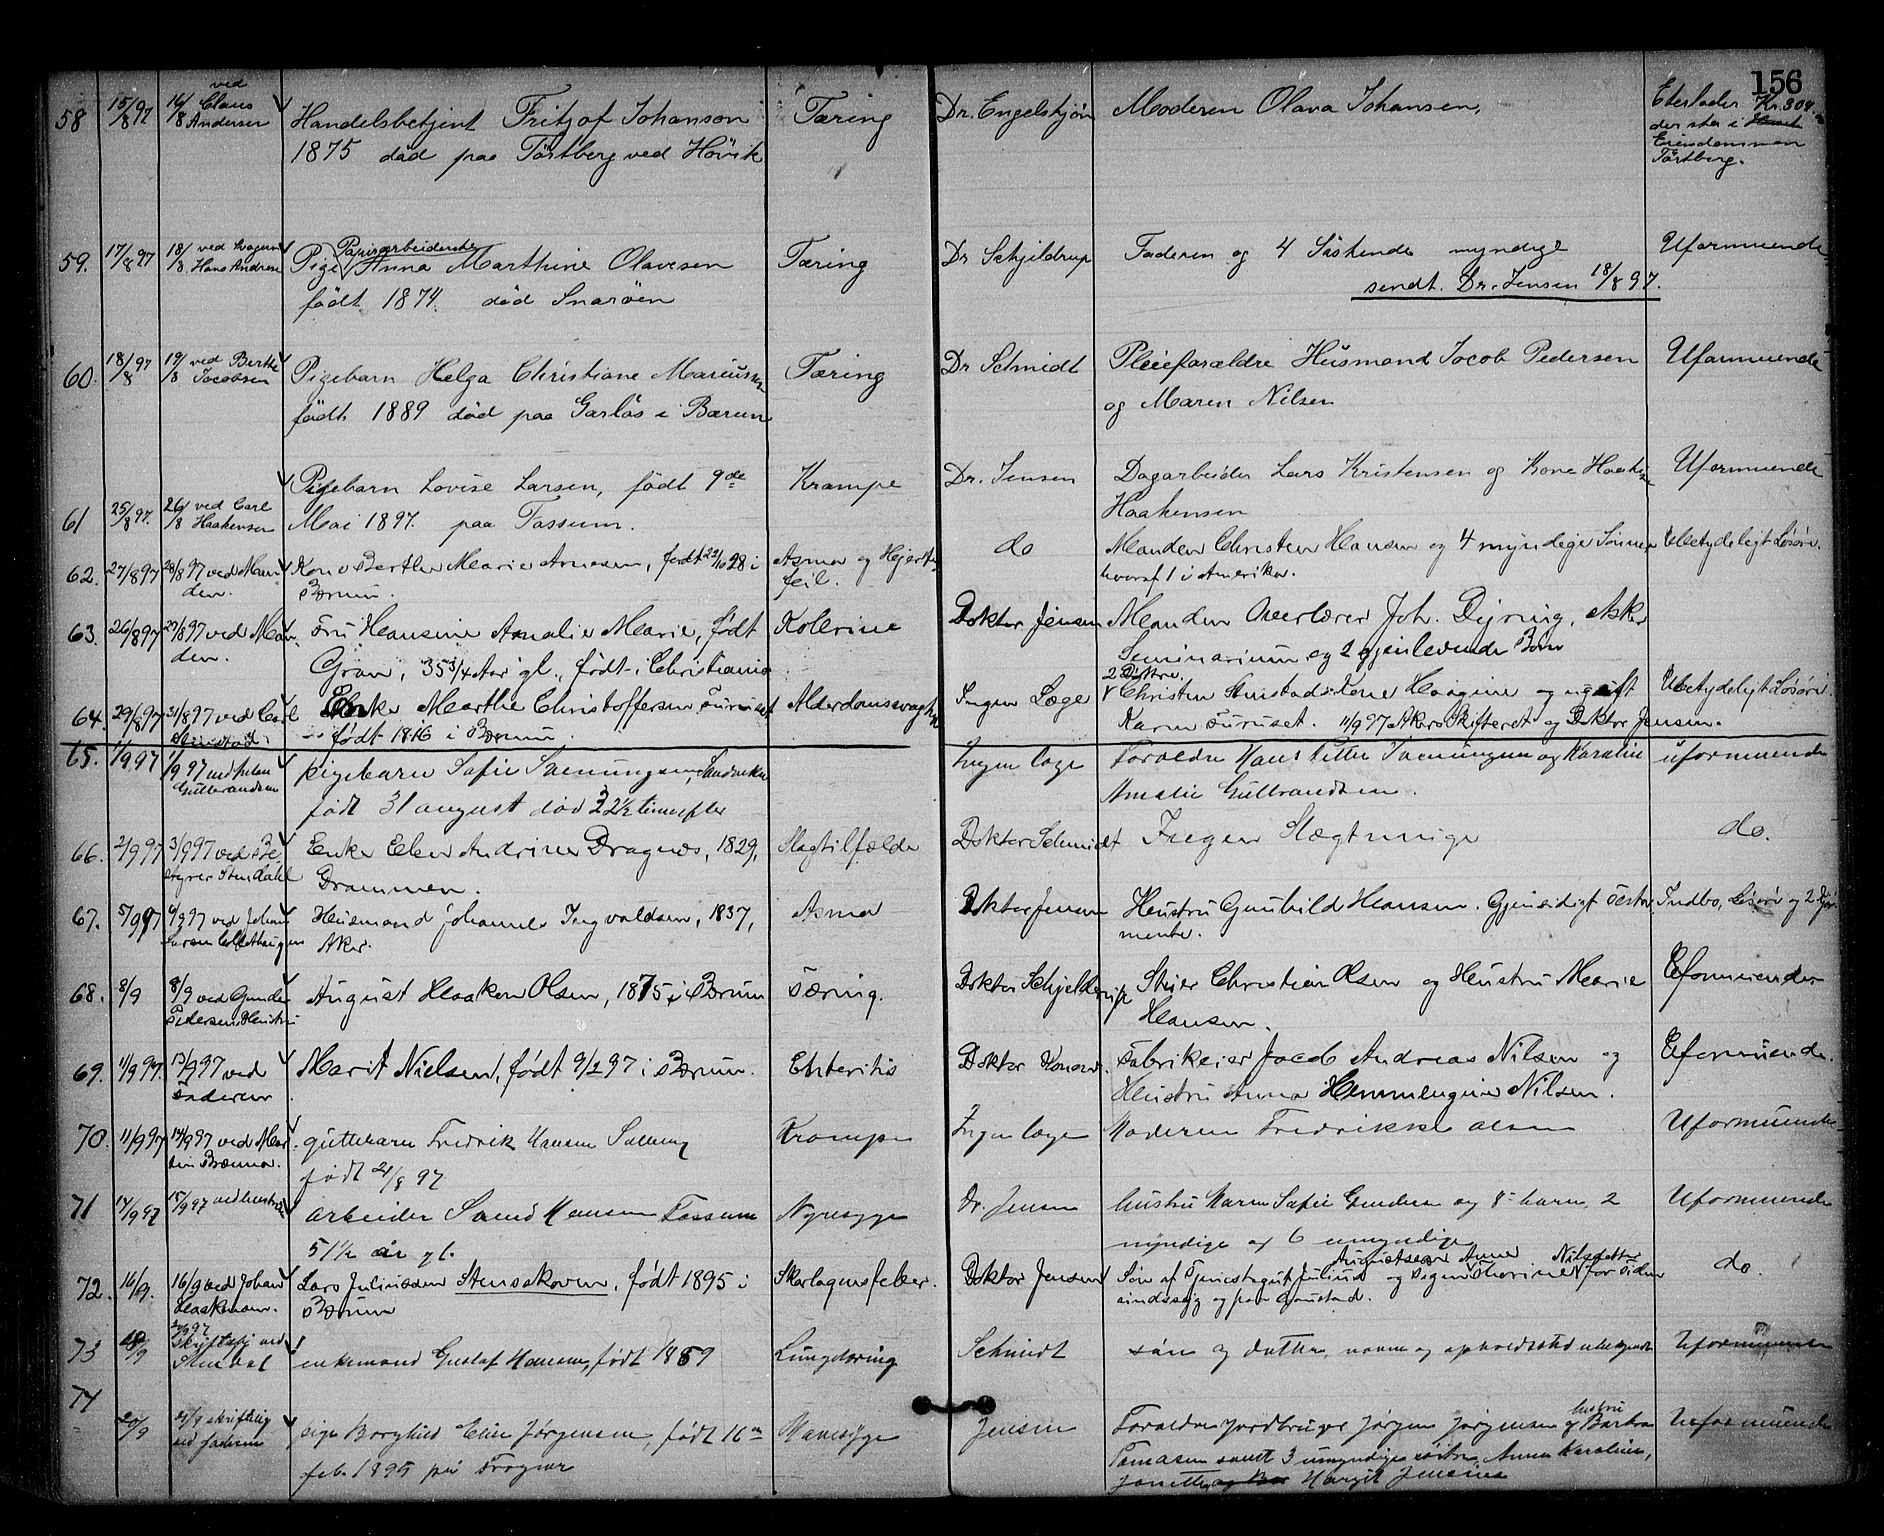 156
58 15/8 97 16/8 ved Claus Andersen Handelsbetjent Fritjof Johanson Tæring Dr. Engelskjøn Moderen Olava Johansen, Efterlader Kr. 304
1875 død paa Törtberg ved Hövik der staa i Huset
Eiendommen
Törtberg.
59. 17/8 97 18/8 ved Hans Andrese Pige Papirarbeiderske Anna Marthine Olavesen Tæring Dr Schjeldrup Faderen og 4 Söskende myndige Uformuende
født 1874. död Snaröen sendt. Dr. Jensen 18/8 97.
60. 18/8 97 19/8 ved Berthe Jacobsen Pigebarn Helga Christiane Marcussen Tæring Dr Schmidt Pleieforældre Husmand Jocob Pedersen Uformuende
födt 1889 död paa Garlös i Bærum og Maren Nilsen
Pigebarn Lovise Larsen, født 9de Krampe Dr. Jensen Dagarbeider Lars Kristensen og Kone Haakine Uformuende
61 25/8 97. 26/8 ved Carl Haakensen Mai 1897. paa Fossum. Haakensen
62. 27/8 97 28/8 97 ved Manden. Kone Berthe Marie Arnesen, født 22/10 28 i Asma og Hjertefeil. do Manden Christen Hansen og 4 myndige Sønner Ubetydeligt Løsøre.
Bærum. hvoraf 1 i Amerika.
63. 26/8 97 27/8 97 ved Manden. Fru Hansine Amalie Marie, født Kolerine Doktor Jensen Manden Overlærer Joh. Dyring, Asker
Gran, 35 3/4 Aar gl., født i Christiania Seminarium og 2 gjenlevende Børn
64. 29/8 97 31/8 97 ved Carl Stustad. Enke Marthe Christoffersen Furuset Alderdomssvaghed Ingen Læge 2 Døttre. Christen Stustads Kone Haagine og ugift Ubetydeligt Løsøre.
født 1816 i Bærum. Karen Furuset. 11/9 97 Akers Skifteret og Doktor Jensen.
65. 1/9 97 1/9 97 ved Gulbrandsen pigebarn Sofie Svenungsen, Sandviken Ingen læge Foreldre Hans Petter Svenungsen og Karoline uformuende
født 31 august død 22 1/2 time efter Amalie Gulbrandsen.
66. 2/9 97 3/9 97 ved Bestyrer Stendahl Enke Elen Andrine Dragnes, 1829, Slagtilfælde Doktor Schmidt Ingen Slægtninge do.
Drammen.
67. 5/9 97 6/9 97 ved Johan Larsen Husmand Johannes Ingvaldsen, 1837, Asma Doktor Jensen Hustru Gunhild Hansen. Gjensidigt Testamente. Indbo, Løsøre og 2
Aker.
68. 8/9 8/9 ved Gunder Pedersens Hustru August Haaken Olsen, 1875 i Bærum Tæring. Doktor Schjelderup Steier Christian Olsen og Hustru Marie Uformuende
Hansen.
69. 11/9 97. 13/9 97 ved Faderen Marit Nielsen, født 9/2 97 i Bærum. Enteritis Doktor Konow. Fabrikeier Jacob Andreas Nilsen og Uformuende.
Hustru Anna Nilsen.
70. 11/9 97 14/9 97 ved Martin Bænna. guttebarn Fredrik Hansen Solberg Krampe Ingen læge Moderen Fredrikke Olsen Uformuende
født 21/8 97
71 14/9 97 15/9 97 ved hustru arbeider Hansen Fossum Nyresyge Dr. Jensen hustru Maren Sofie Gundersen og 8 barn, 2 Uformuende
51 1/2 år gl. myndige og 6 umyndige
72. 16/9. 16/9 ved Johan Haakensen. Lars Juliussen Stensskoven, født 1895 i Skarlagensfeber. Doktor Jensen Søn af Tjenestegut Julius Augustsen og Pigen Anne Thorine Nilsdatter for Tiden do.
Bærum sindssyg og paa Gaustad.
73 18/9 20/9 97 Skriftelig ved Stendal enkemand Gustaf Hansen, født 1859 Lungetæring Schmidt søn og datter, navn og opholdssted ubekjendt Uformuende
74
20/9 21/9 skriftelig ved faderen pige Borghild Elise Jørgensen, født 16de Mavesyge Jensen Foreldre jordbruger Jørgen Jørgensen og hustru Barbra Uformuende
feb. 1895 på Frogner Tomasen samt 3 umyndige søstre, Anna Karoline,
Janette, Margit Jensine